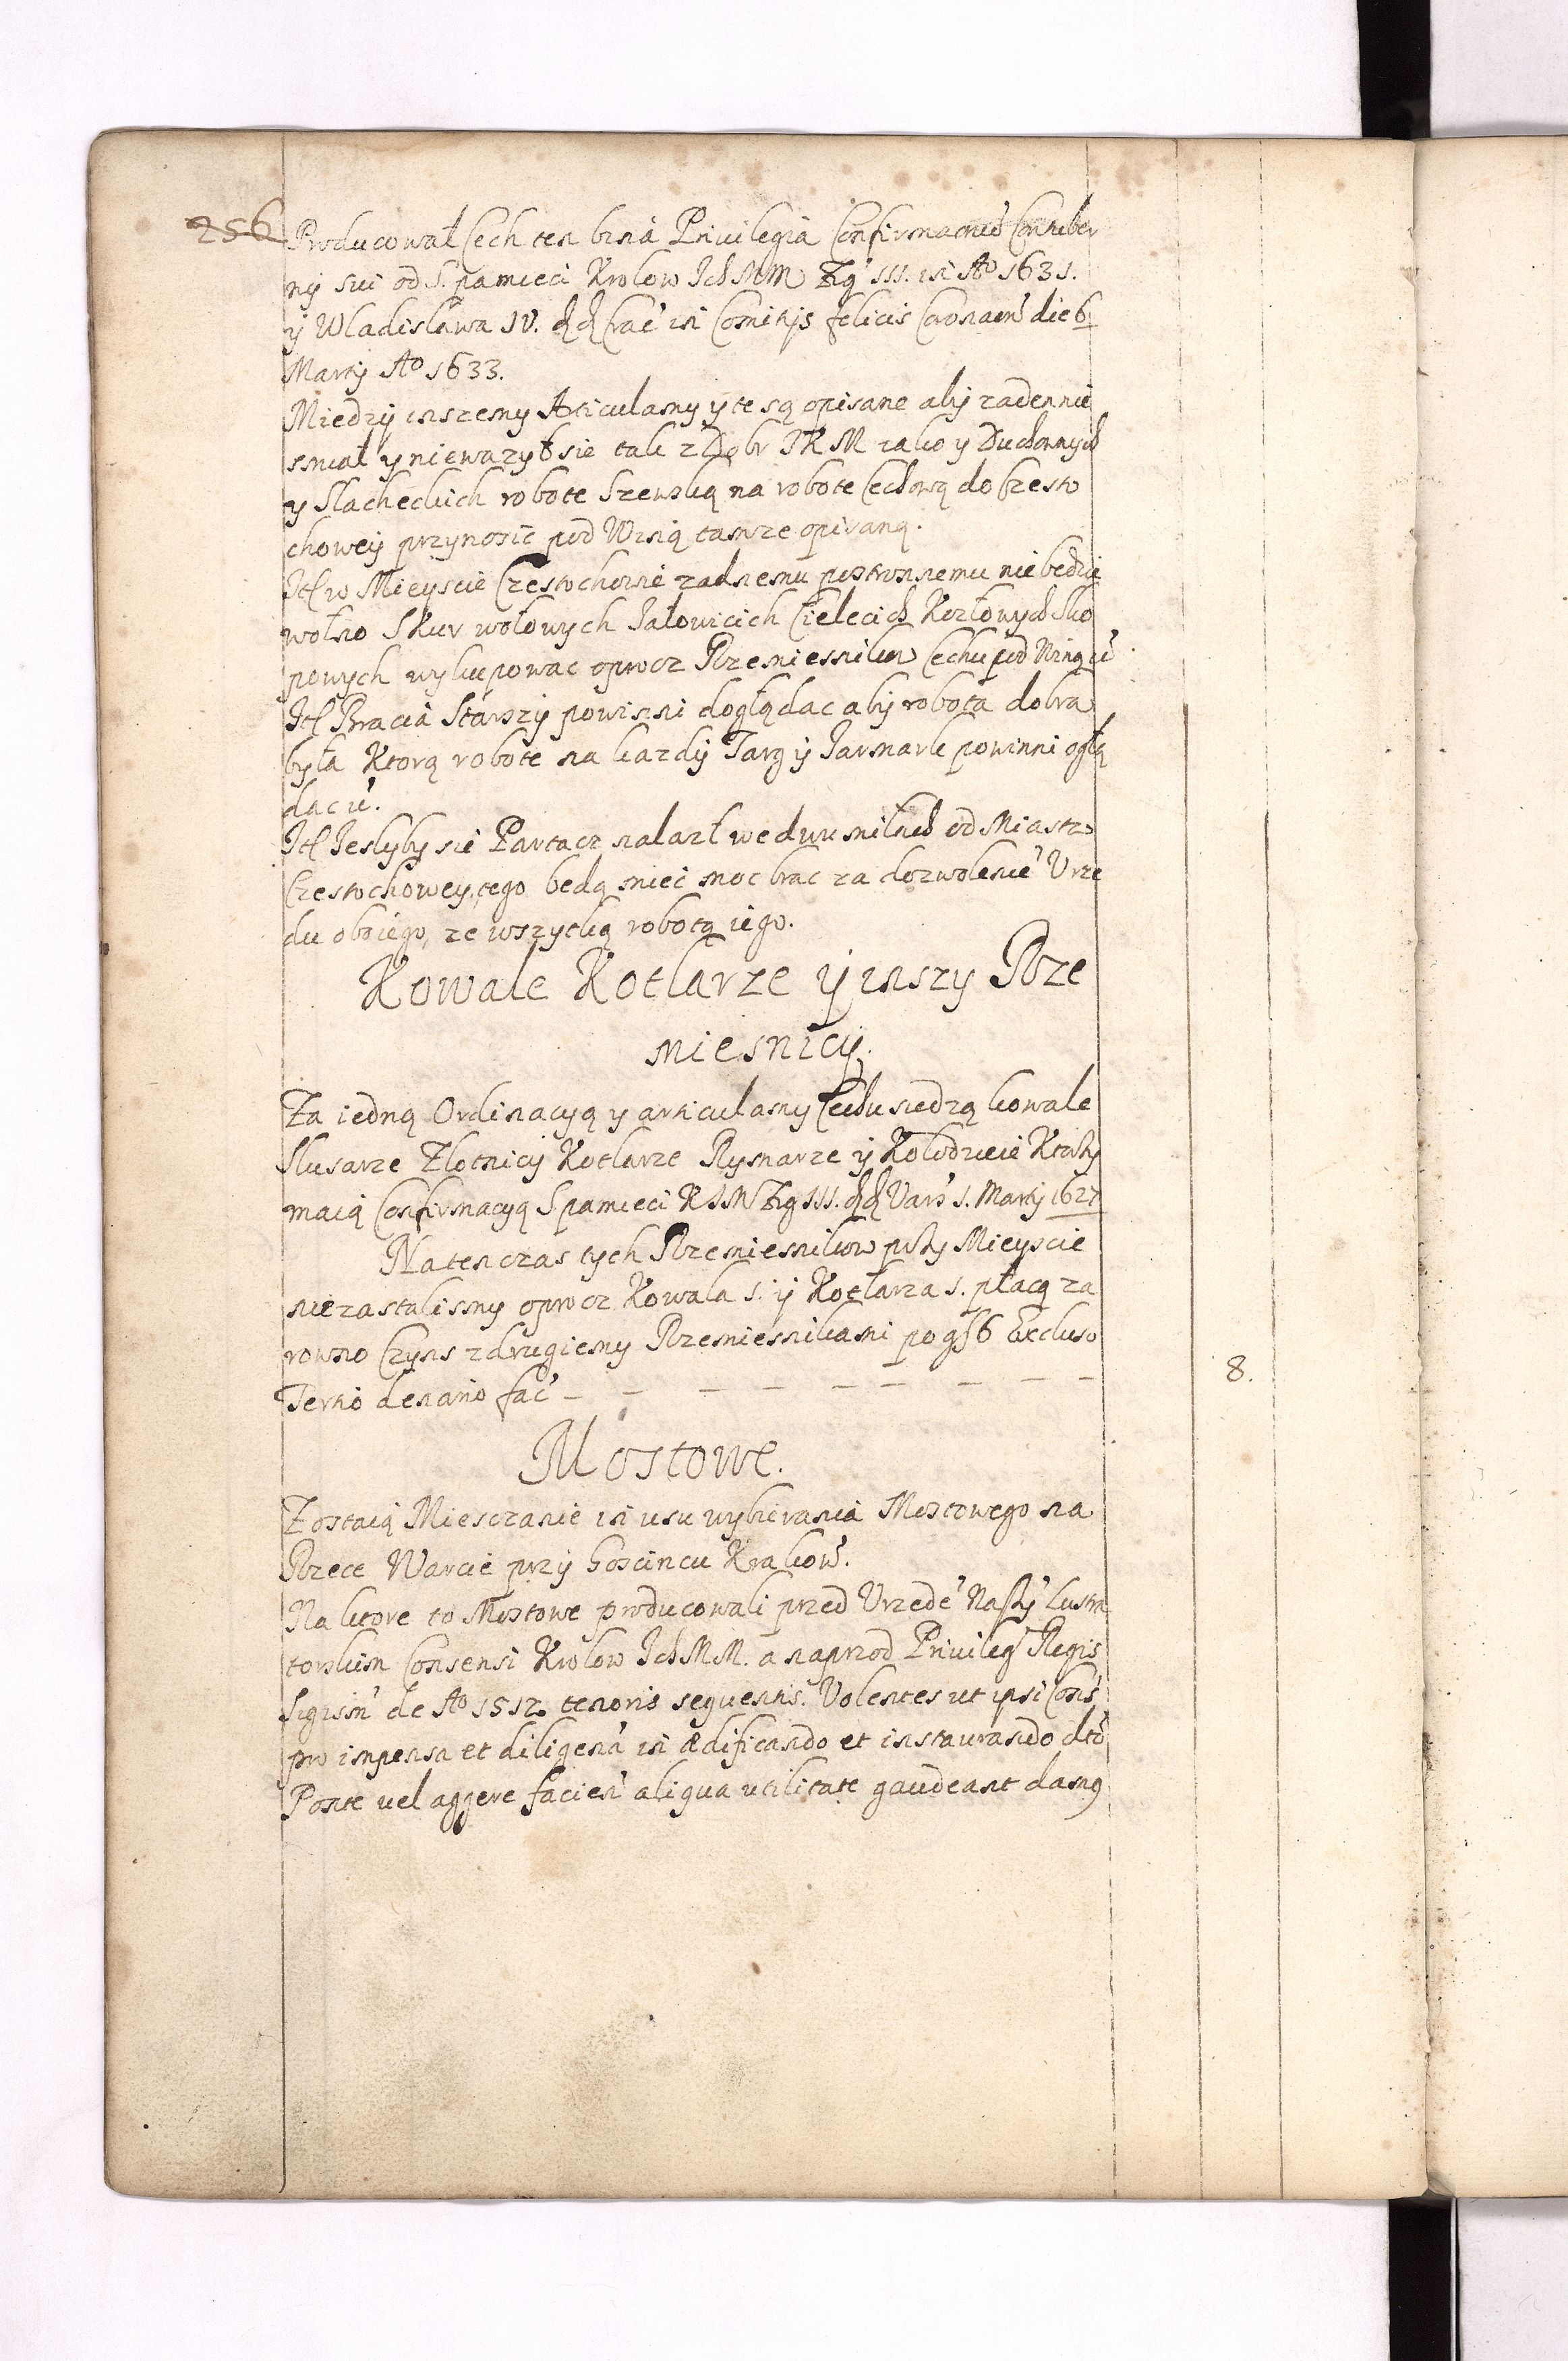 256
Producował Cech ten bina Privilegia Confirmacnis Contuber
nij sui od S. pamieci Krolow Ich MM Zig III. in Ao 1631.
ÿ Wladisława IV. dd Crac in Comitijs felicis Coronacin die 6
Martij Ao 1633.
Miedzÿ inszemy Articulamy ÿ te są opisane abÿ zaden nie
smiał y niewazył sie tak z Dobr JKM iako y Duchownych
y Slacheckich robote Szewską na robote Cechową do Czesto
choweÿ przynosic pod Winą tamze opisaną.
Itt w Mieyscie Czestochowie zadnemu postronnemu nie bedzie
wolno Skur wołowych Jałowicich Cielecich Kozłowych Sko
powych wykupowac oprocz Rzemiesnikow Cechu pod Winą ie
Itt Bracia Starszÿ powinni doglądac abÿ robota dobra
była Ktorą robote na kazdÿ Targ ÿ Jarmark powinni oglą
dac ie.
Itt Jeslyby sie Partacz nalazł we dwu milach od Miasta
Czestochowey, tego bedą mieć moc brac za dozwolenie Vrze
du oboiego, ze wszytką robotą iego.
Kowale Kotlarze ÿ inszy Rze
miesnicÿ.
Za iedną Ordinacyą y articulamy Cechu siedzą kowale
Slusarze Zlotnicÿ Kotlarze Rymarze ÿ Kolodzieie Ktorzy
maią Confirmacyą S pamieci KJM Zig III. dd Vars 1. Martij 1627
Na ten czas tych Rzemiesnikow przy Mieyscie
nie zastalismy oprocz Kowala 1. ÿ Kotlarza 1. płacą za
rowno Czyns z drugiemy Rzemiesnikami po gr 6 Excluso
Tertio denario fac - - - - - - - - 8.
Mostowe.
Zostaią Miesczanie in usu wybierania Mostowego na
Rzece Warcie przÿ Goscincu Krakow.
Na ktore to Mostowe producowali przed Vrzede Naszy Lustra
torskim Consensi Krolow Ich MM. a naprzod Privileg Regis
Sigism de Ao 1512. tenoris sequentis. Volentes ut ipsi Cons
pro impensa et diligena in ædificando et instaurando dto
Ponte vel aggere facien aliqua utilitate gaudeant damq